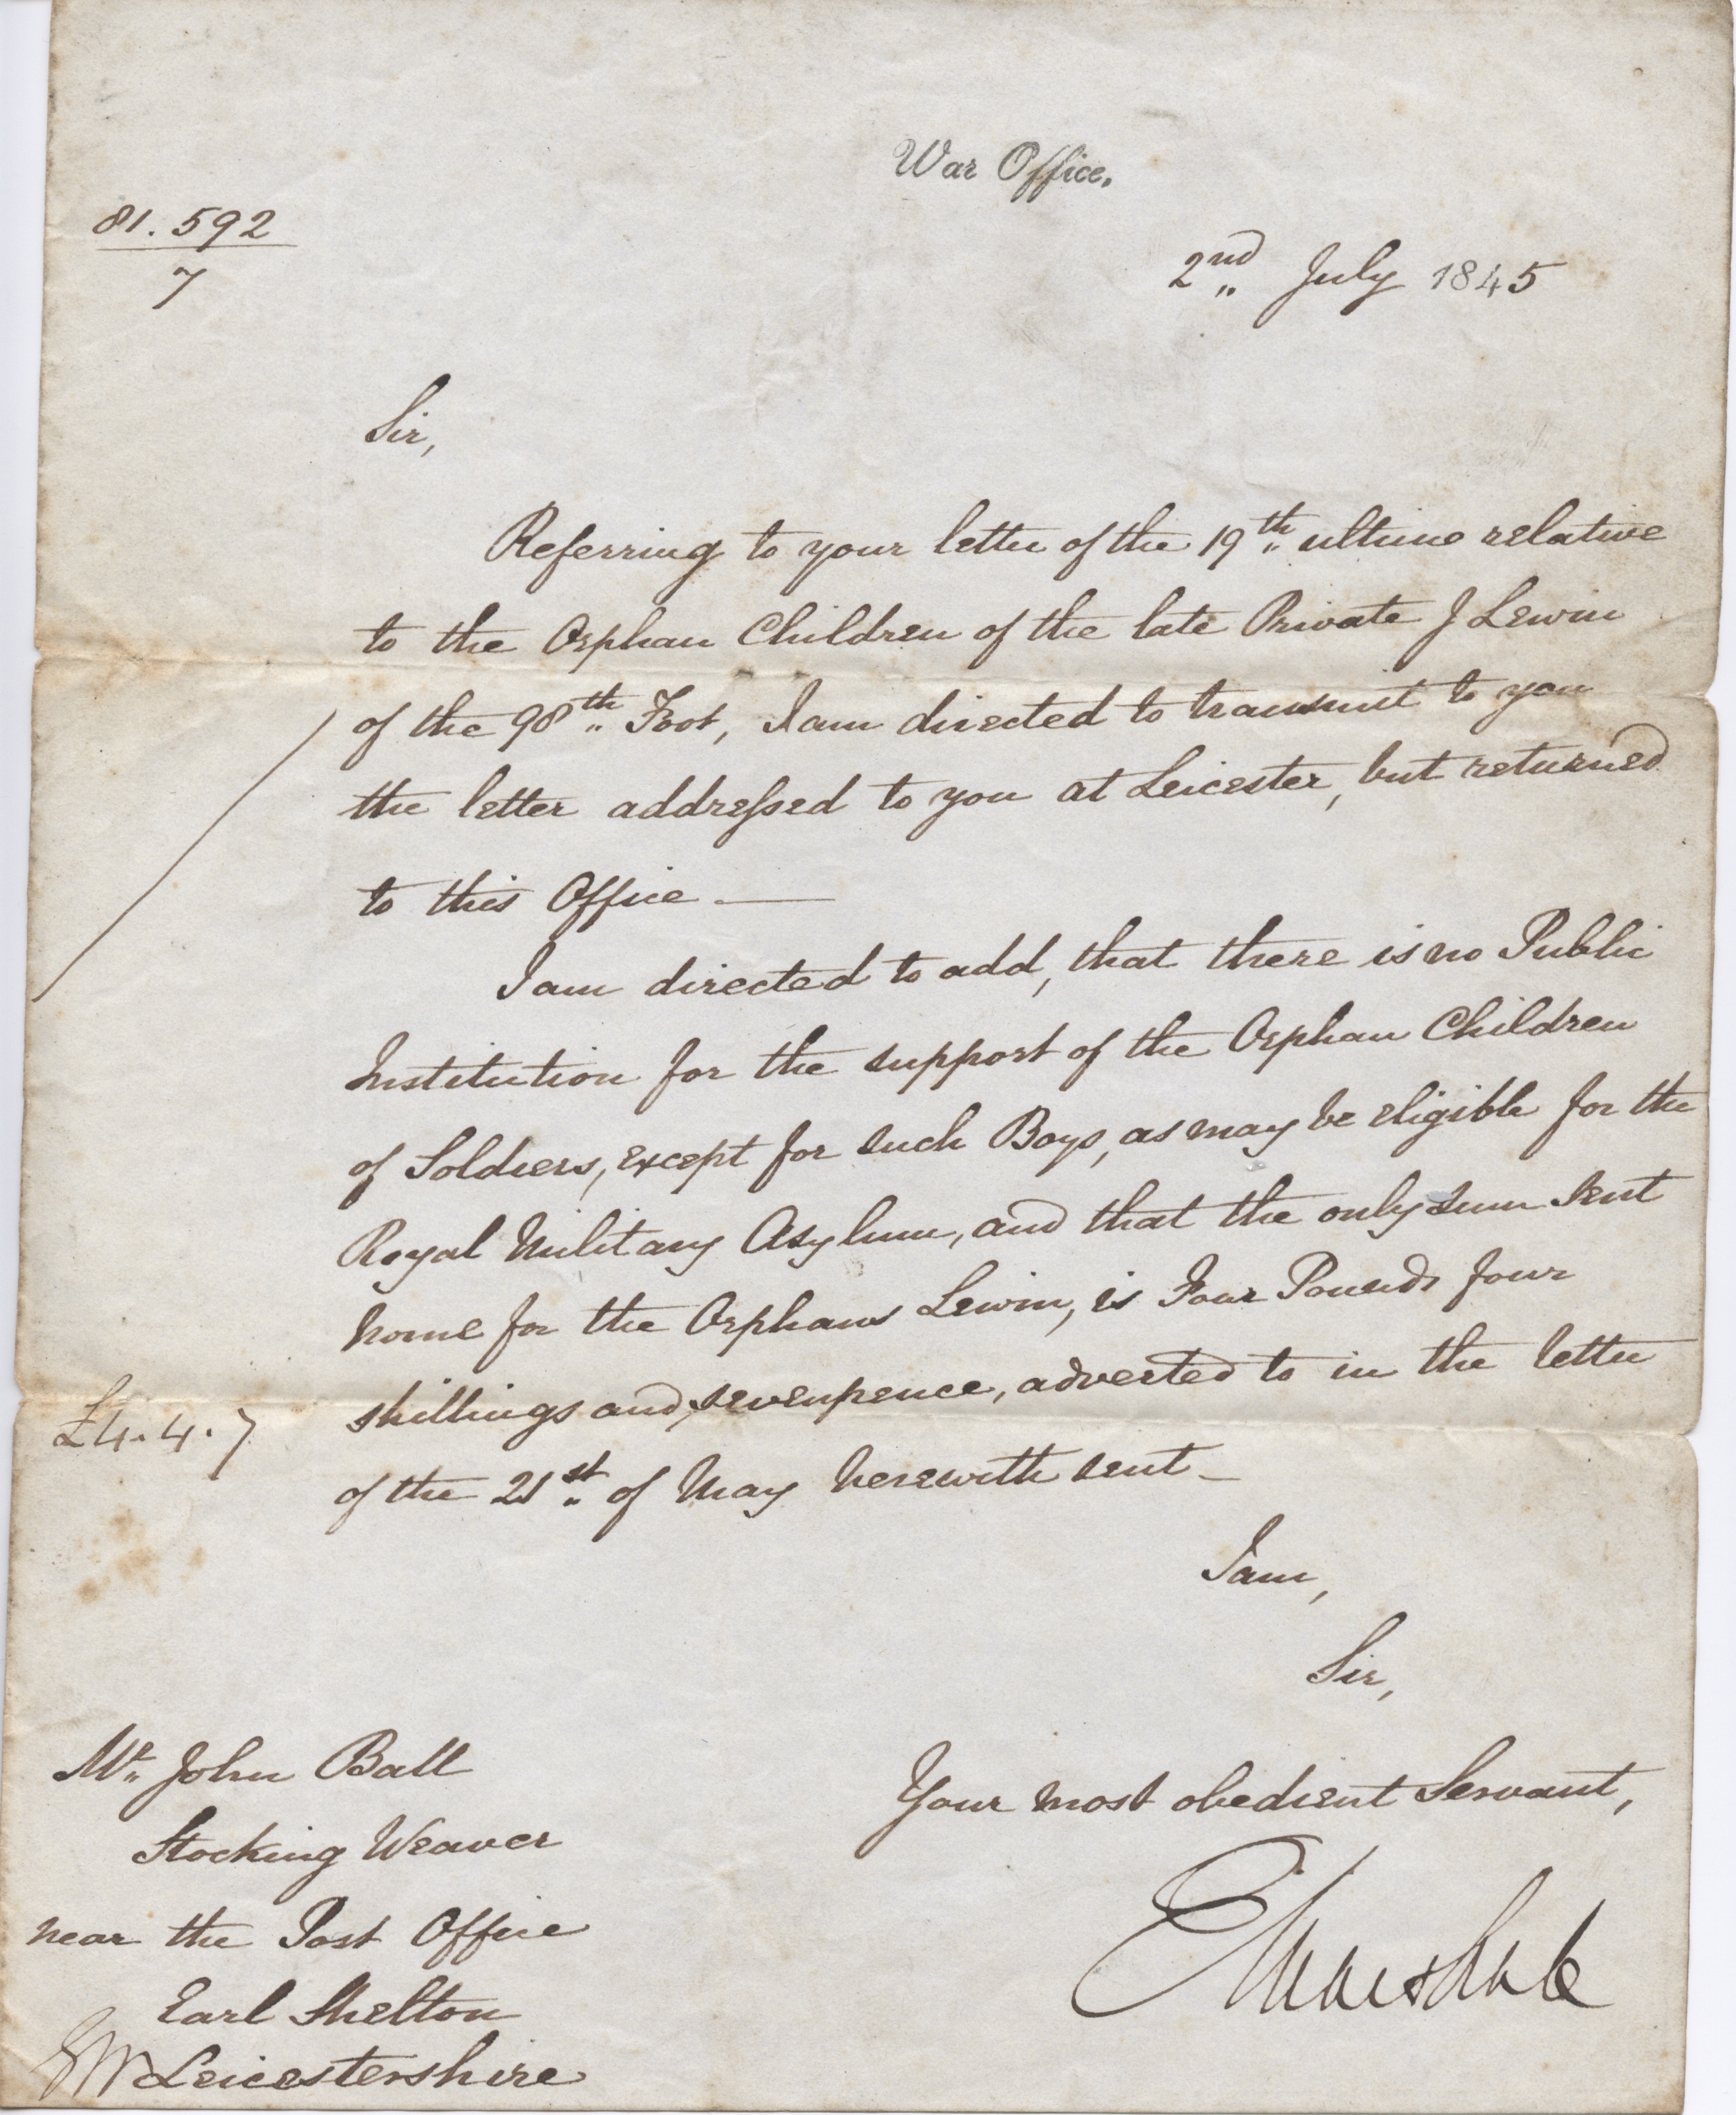 War Office.
81.592
7
2nd July 1845
Sir,
Referring to your letter of the 19th ultimo relative
to the Orphan Children of the late Private J Lewin
of the 98th Foot, I am directed to transmit to you
the letter addressed to you at Leicester, but returned
to this Office —
I am directed to add, that there is no Public
Institution for the support of the Orphan Children
of Soldiers, except for such Boys, as may be eligible for the
Royal Military Asylum, and that the only sum sent
home for the Orphans Lewin, is Four Pounds four
shillings and sevenpence, adverted to in the letter
£4.4.7
of the 21st of May herewith sent —
I am,
Sir,
Your most obedient Servant,
Mr John Ball
Stocking Weaver
near the Post Office
Earl Shelton
Leicestershire